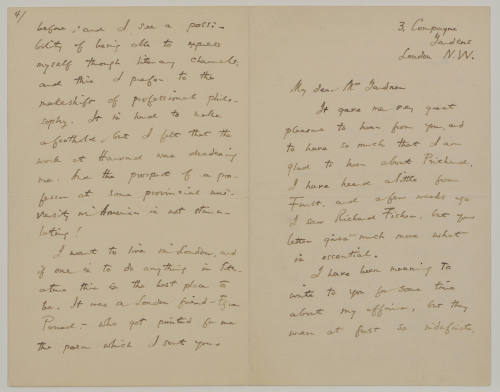 4/
before; and I see a possi-
bility of being able to express
myself through literary channels,
and this I prefer to the
makeshift of professional philo-
sophy. It is hard to make
a foothold, but I felt that the
work at Harvard was deadening
me. And the prospect of a pro-
fessor at some provincial uni-
versity in America is not stimu-
lating!
I want to live in London, and
if one is to do anything in lite-
rature this is the best place to
be. It was a London friend –
Pound – who got printed for me
the poem which I sent you.
3, Compayne
Gardens
London N.W.
My dear Mrs Gardner
It gave me very great
pleasure to hear from you, and
to have so much that I am
glad to hear about Prichard.
I have heard a little from
Furst, and a few weeks ago
I saw Richard Fisher, but your
letter gives much more what
is essential.
I have been meaning to
write to you for some time
about my affairs, but they
were at first so indefinite,